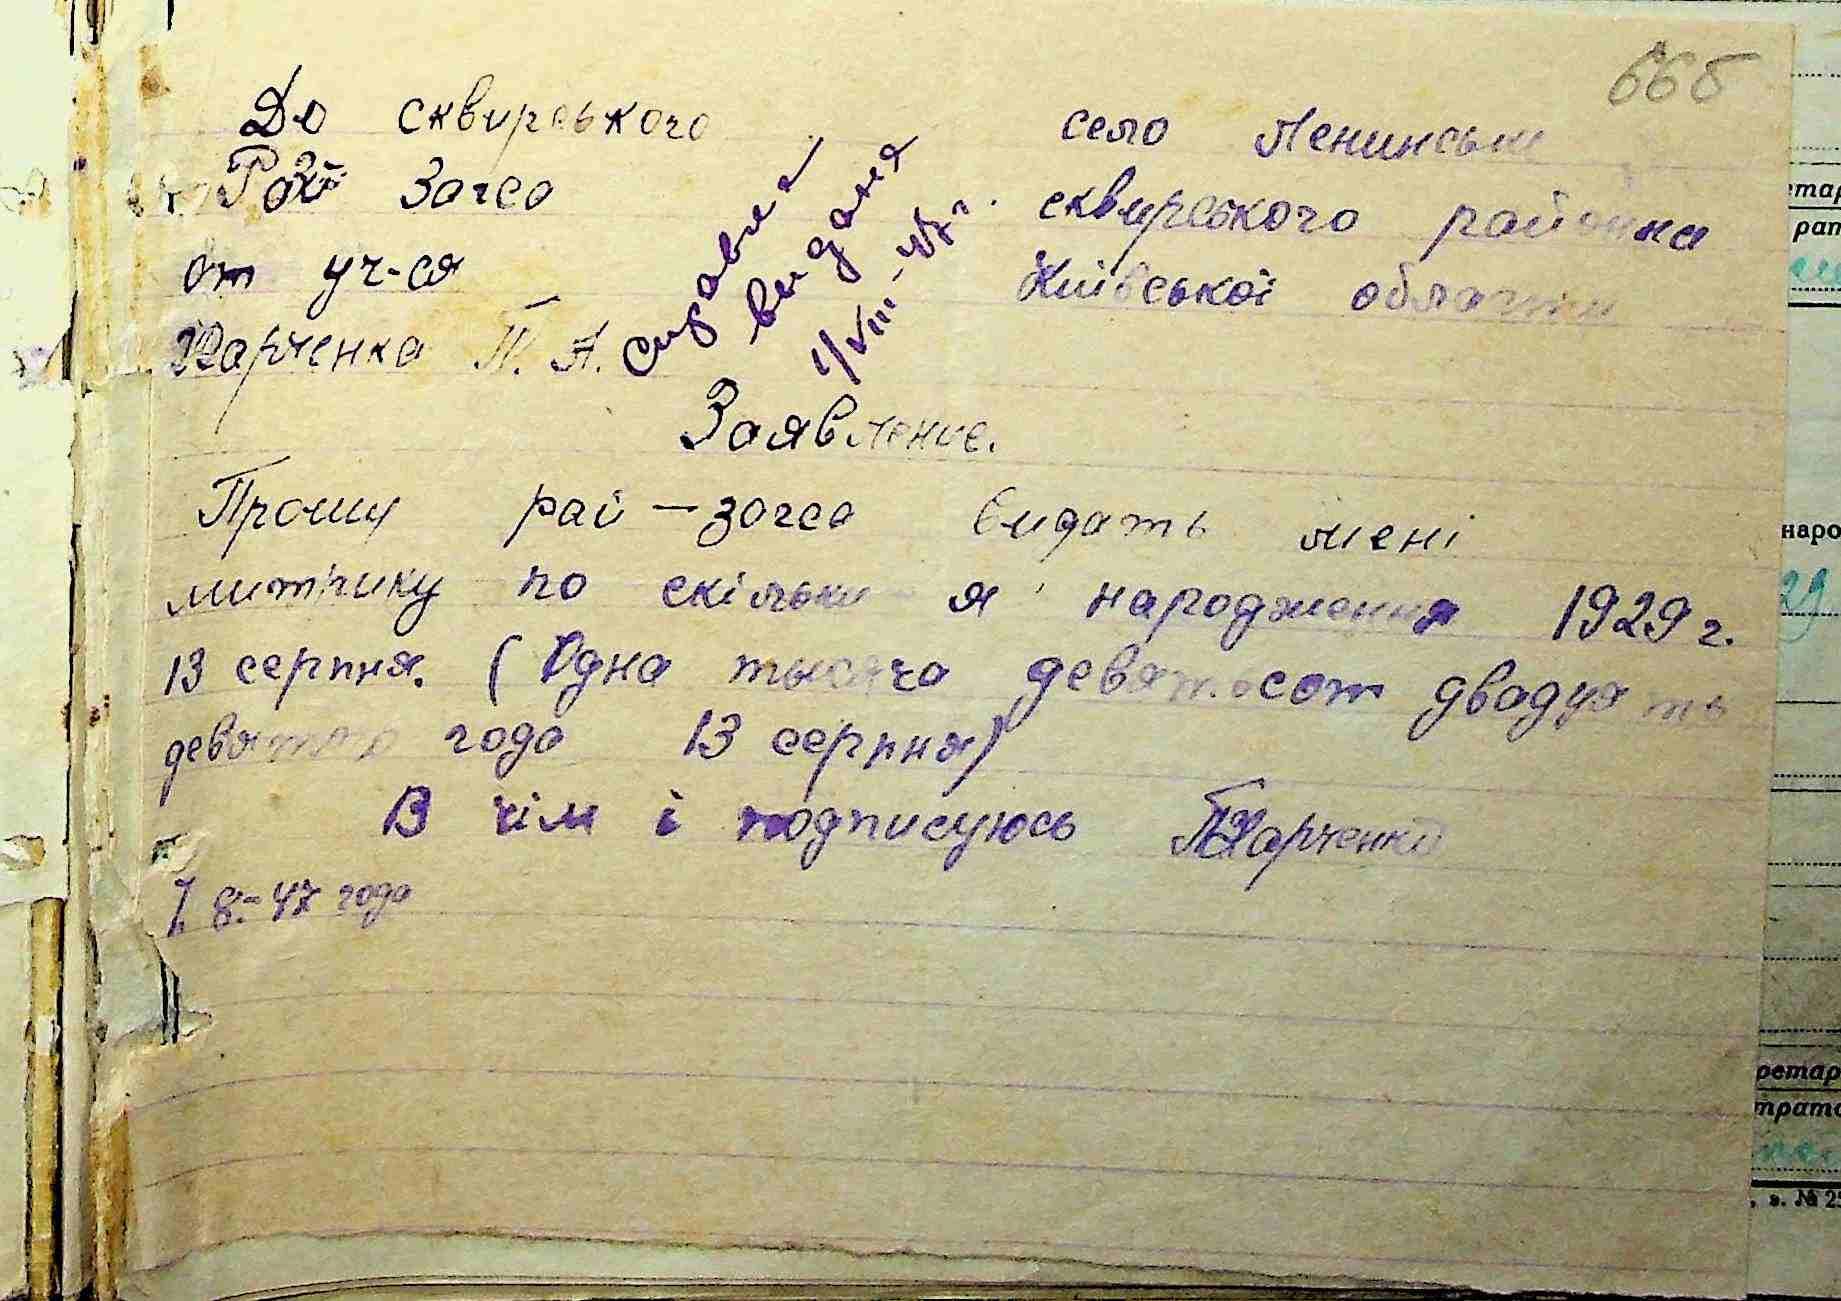 666
До сквирського
Рай Загса
от уч-ся
Харченка П. А.
село Ленинське
сквирського району
Київської области
справка
видана
1/VIII-47 г.
Заявление.
Прошу рай-загса видать мені
митрику по скільки я народження 1929 г.
13 серпня. (Одна тысяча девятьсот двадцять
девятого года 13 серпня)
В чім і подписуюсь ПХарченко
1. 8.-47 года
етар
рат
наро
29
ретар
трато
, з. № 2